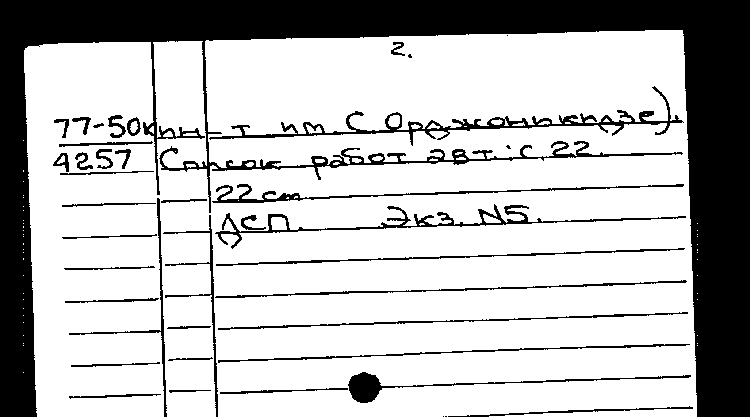 2.
77-50к ин-т им. С. Орджоникидзе).
4257 Список работ авт.: с. 22.
22 cm.
ДСП. Экз. N5.